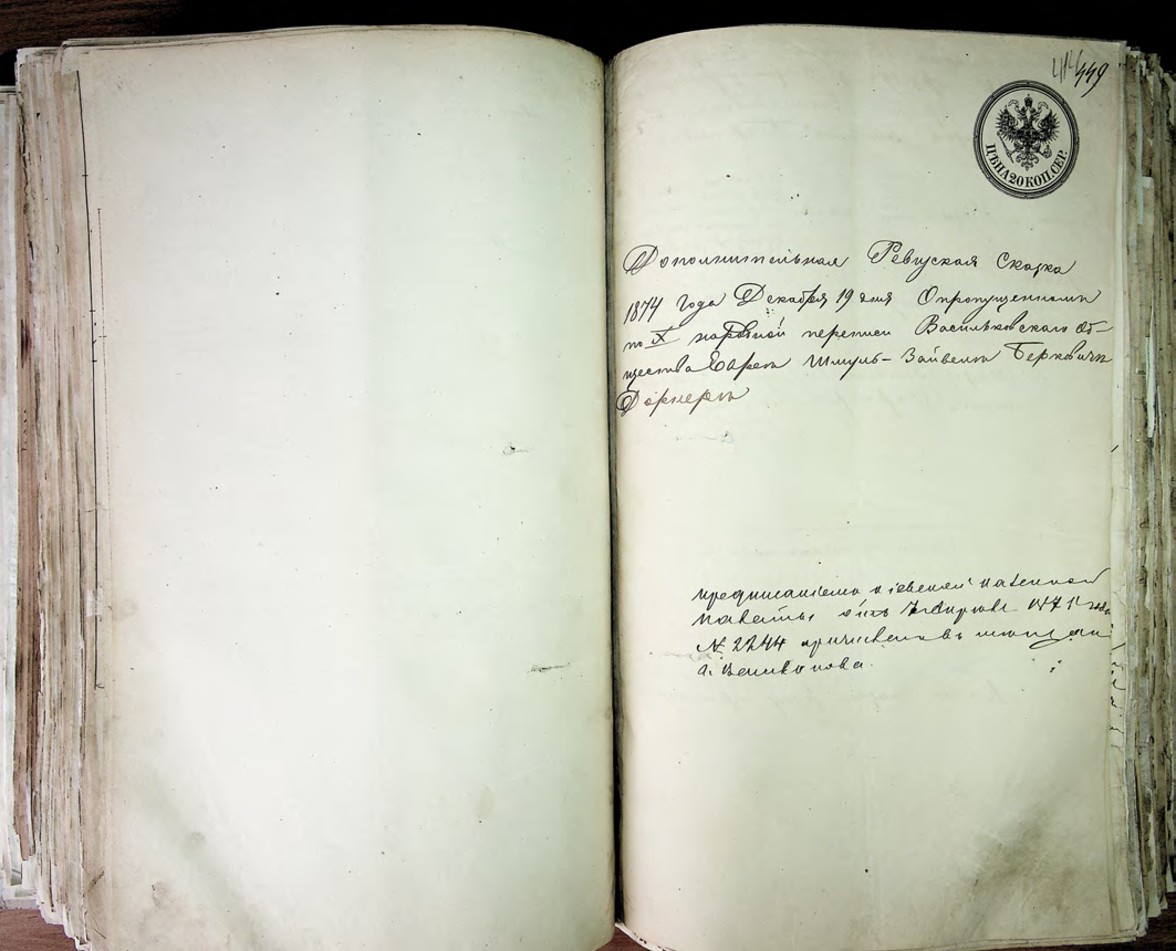 449
ЦѢНА 20 КОП. СЕР.
Дополнительная Ревизская Сказка
1874 года Декабря 19 дня О пропущенномъ
по X народной переписи Васильковскаго об-
щества Еврея Шмуль-Зайвелъ Берковичъ
Дорнеръ
предписаніемъ кіевской казенной
палаты отъ 187 года
№ 2244 причисленъ въ